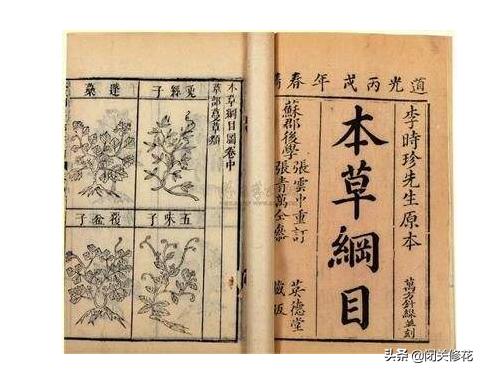 道光丙戌年春
李時珍先生原本
萬方針線並刻
本草綱目
蘇郡後學
張雲中重訂
張青萬全參
英德堂
藏版
本草綱目圖卷中
草部蔓草類
兔絲子
蓬蘽
五味子
覆盆子
头条 @闭关修花